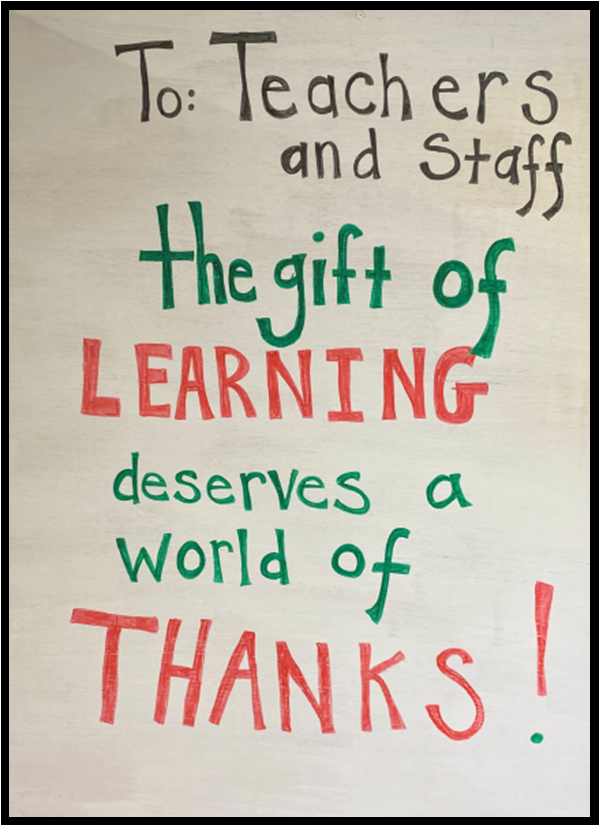 To: Teachers
and Staff
the gift of
LEARNING
deserves a
world of
THANKS!